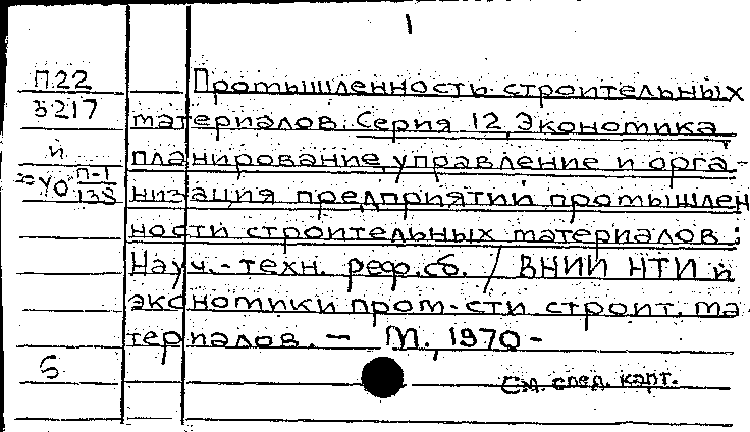 1
П22
3217
и
Промышленность строительных
материалов. Серия 12, Экономика
планирование, управление и орга-
низация предприятий промышлен
ности строительных материалов:
Науч.-техн. реф. сб. / ВНИИ НТИ и
экономики пром-сти строит. ма-
териалов. — М., 1970-
5
См. след. карт.